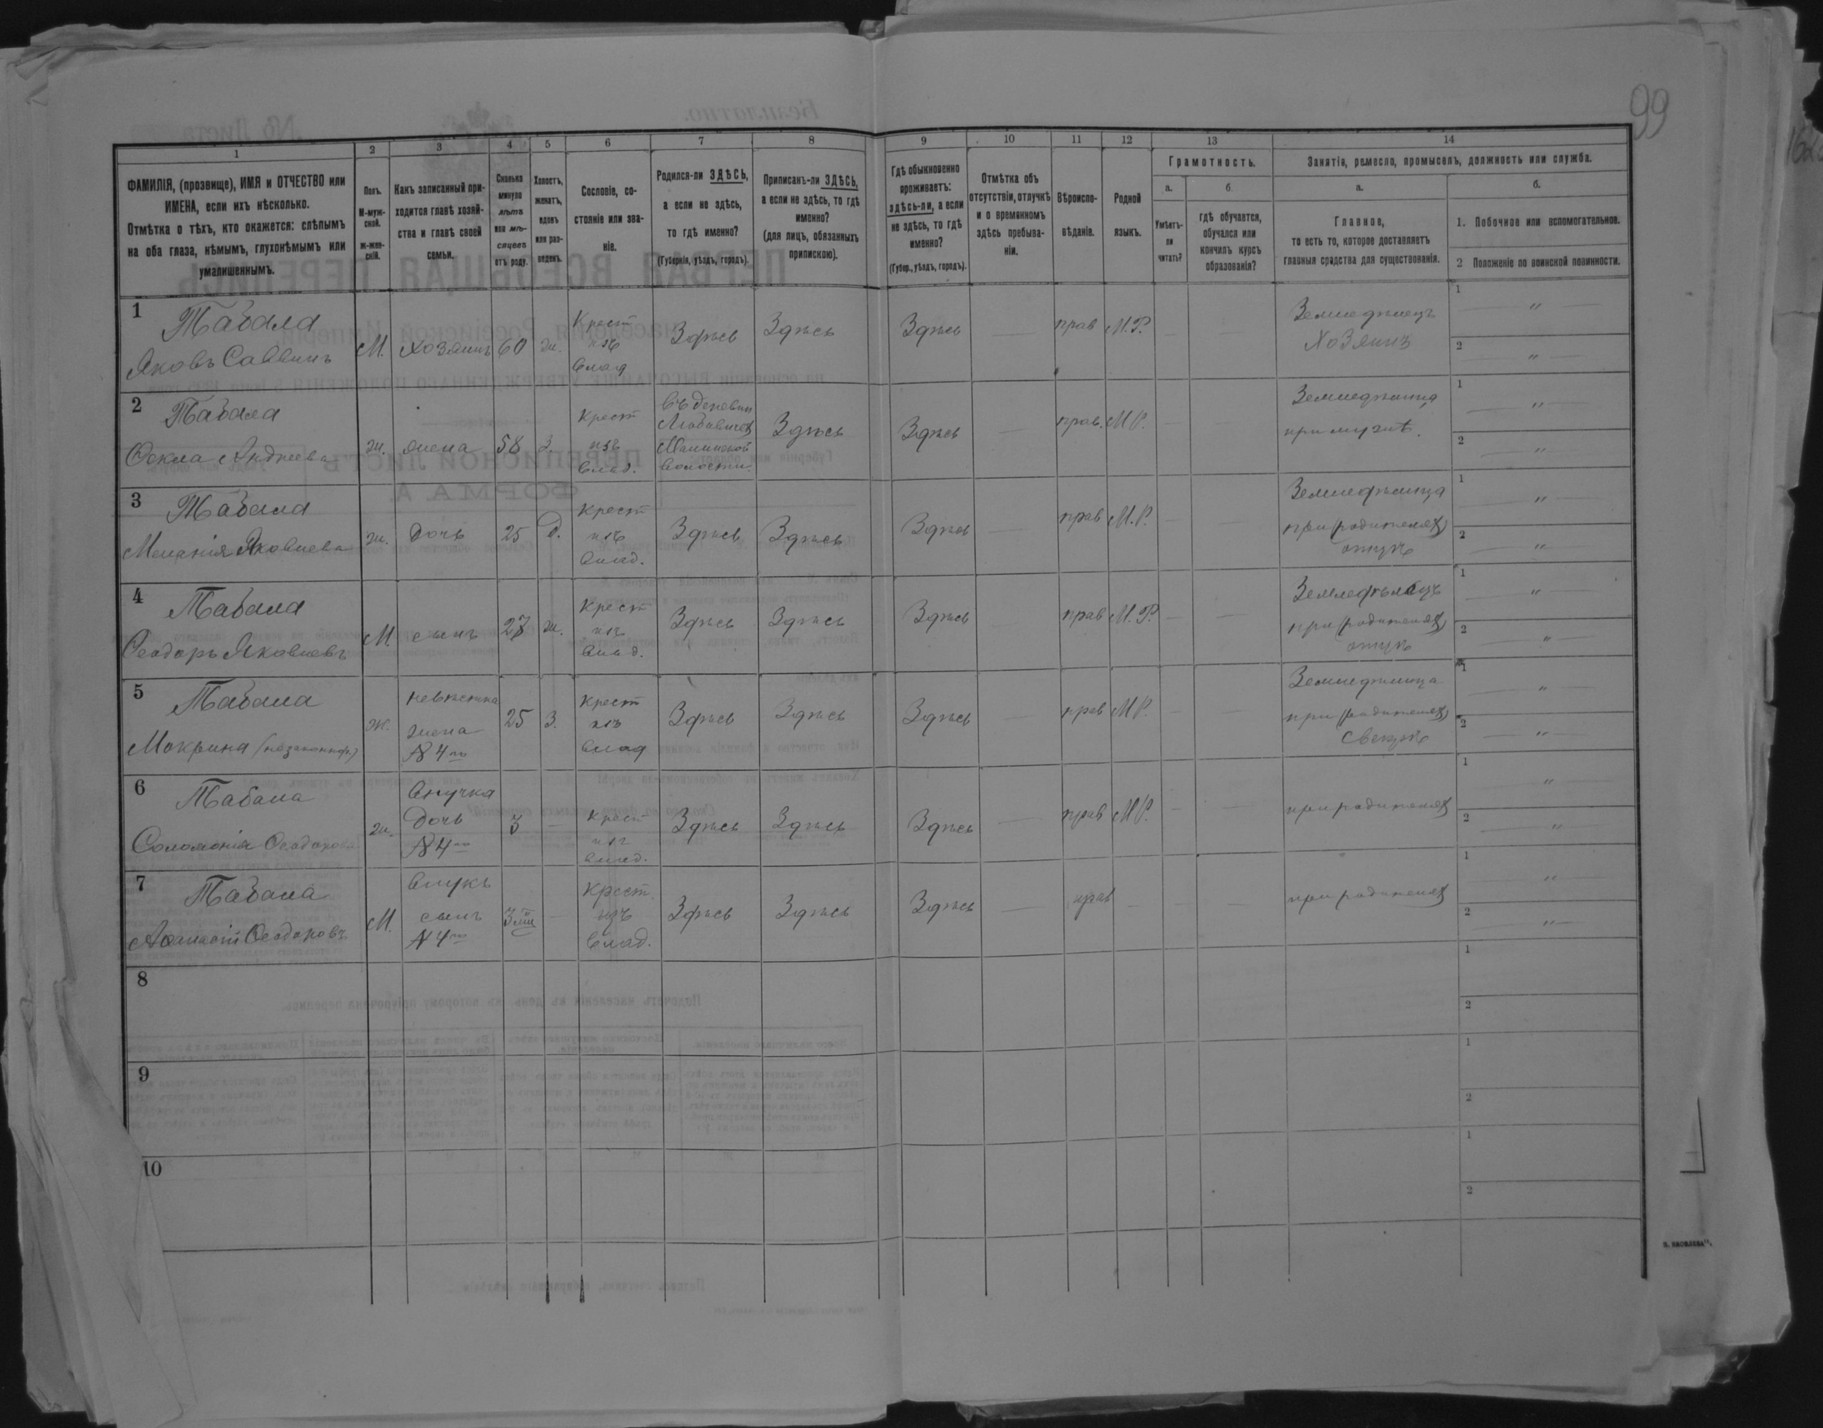 99
1 2 3 4 5 6 7 8 9 10 11 12 13 14
ФАМИЛІЯ, (прозвище), ИМЯ и ОТЧЕСТВО или
ИМЕНА, если ихъ нѣсколько.
Отмѣтка о тѣхъ, кто окажется: слѣпымъ
на оба глаза, нѣмымъ, глухонѣмымъ или
умалишеннымъ.
Полъ.
М-муж-
ской.
ж-жен-
скій.
Какъ записанный при-
ходится главѣ хозяй-
ства и главѣ своей
семьи.
Сколько
минуло
лѣтъ
или мѣ-
сяцевъ
отъ роду.
Холостъ,
женатъ,
вдовъ
или раз-
веденъ.
Сословіе, со-
стояніе или зва-
ніе.
Родился-ли ЗДѢСЬ,
а если не здѣсь,
то гдѣ именно?
(Губернія, уѣздъ, городъ).
Приписанъ-ли ЗДѢСЬ,
а если не здѣсь, то гдѣ
именно?
(для лицъ, обязанныхъ
припискою).
Гдѣ обыкновенно
проживаетъ:
здѣсь-ли, а если
не здѣсь, то гдѣ
именно?
(Губер., уѣздъ, городъ).
Отмѣтка объ
отсутствіи, отлучкѣ
и о временномъ
здѣсь пребыва-
ніи.
Вѣроиспо-
вѣданіе.
Родной
языкъ.
Грамотность.
а. б
Умѣетъ-
ли
читать?
гдѣ обучается,
обучался или
кончилъ курсъ
образованія?
Занятіе, ремесло, промыселъ, должность или служба.
а.
Главное,
то есть то, которое доставляетъ
главныя средства для существованія.
б.
1. Побочное или вспомогательное.
2 Положеніе по воинской повинности.
1
Табала
Яковъ Саввинъ
М.
хозяинъ
60
ж.
Крест
изъ
влад
Здѣсь
Здѣсь
Здѣсь
—
прав
М.Р.
— —
Земледѣлецъ
Хозяинъ
1 — " —
2 — " —
2
Табала
Ѳекла Андреева
ж.
жена
58
З.
крест
изъ
влад.
въ деревни
волости
Здѣсь
Здѣсь
—
прав.
М.Р.
— —
Земледѣлица
при мужѣ.
1 — " —
2 — " —
3
Табала
Меланія Яковлева
ж.
дочь
25
д.
крест
изъ
влад.
Здѣсь
Здѣсь
Здѣсь
—
прав
М.Р.
— —
Земледѣлица
при родителях
отцѣ
1 — " —
2 — " —
4
Табала
Ѳеодоръ Яковлевъ
М
сынъ
27
ж.
крест
изъ
влад.
Здѣсь
Здѣсь
Здѣсь
—
прав
М.Р.
— —
Земледѣлецъ
при родителях
отцѣ
1 — " —
2 — " —
5
Табала
Мокрина
ж.
невѣстка
жена
№ 4го
25
З.
крест
изъ
влад
Здѣсь
Здѣсь
Здѣсь
—
прав
М.Р.
— —
Земледѣлица
при родителях
свекрѣ
1 — " —
2 — " —
6
Табала
Соломонія Ѳеодорова
ж.
внучка
дочь
№ 4го
3
—
крест
изъ
влад.
Здѣсь
Здѣсь
Здѣсь
—
прав
М.Р.
— —
при родителях
1 — " —
2 — " —
7
Табала
Аѳанасій Ѳеодоровъ
М.
внукъ
сынъ
№ 4го
—
крест
изъ
влад.
Здѣсь
Здѣсь
Здѣсь
—
прав
— — —
при родителях
1 — " —
2 — " —
8
1
2
9
1
2
10
1
2